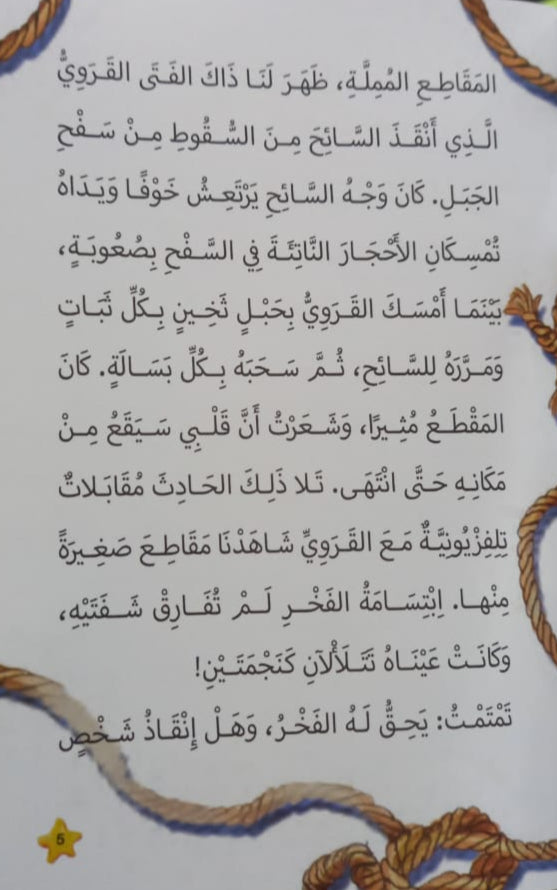 المَقَاطِعِ المُمِلَّةِ، ظَهَرَ لَنَا ذَاكَ الفَتَى القَرَوِيُّ
الَّذِي أَنْقَذَ السَّائِحَ مِنَ السُّقُوطِ مِنْ سَفْحِ
الجَبَلِ. كَانَ وَجْهُ السَّائِحِ يَرْتَعِشُ خَوْفًا وَيَدَاهُ
تُمْسِكَانِ الأَحْجَارَ النَّاتِئَةَ فِي السَّفْحِ بِصُعُوبَةٍ،
بَيْنَمَا أَمْسَكَ القَرَوِيُّ بِحَبْلٍ ثَخِينٍ بِكُلِّ ثَبَاتٍ
وَمَرَّرَهُ لِلسَّائِحِ، ثُمَّ سَحَبَهُ بِكُلِّ بَسَالَةٍ. كَانَ
المَقْطَعُ مُثِيرًا، وَشَعَرْتُ أَنَّ قَلْبِي سَيَقَعُ مِنْ
مَكَانِهِ حَتَّى انْتَهَى. تَلا ذَلِكَ الحَادِثَ مُقَابَلاتٌ
تِلِفِزْيُونِيَّةٌ مَعَ القَرَوِيِّ شَاهَدْنَا مَقَاطِعَ صَغِيرَةً
مِنْها. اِبْتِسَامَةُ الفَخْرِ لَمْ تُفَارِقْ شَفَتَيْهِ،
وَكَانَتْ عَيْنَاهُ تَتَلَأْلَآنِ كَنَجْمَتَيْنِ!
تَمْتَمْتُ: يَحِقُّ لَهُ الفَخْرُ، وَهَلْ إِنْقَاذُ شَخْصٍ
5